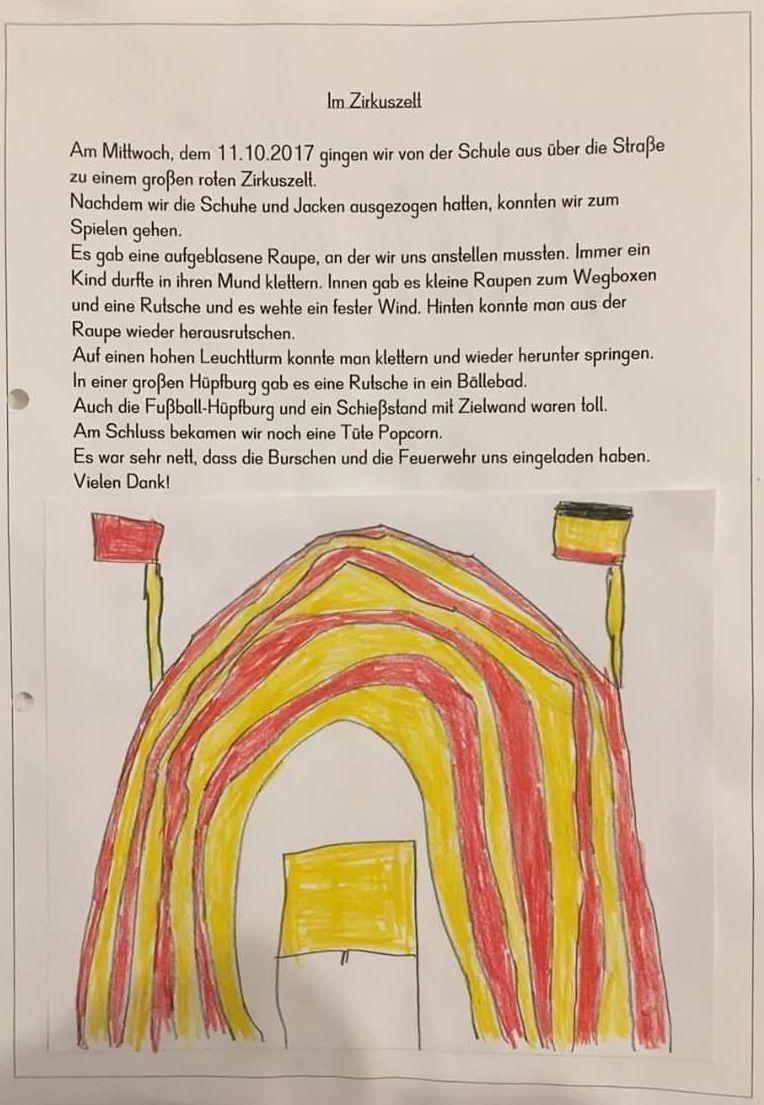 Im Zirkuszelt
Am Mittwoch, dem 11.10.2017 gingen wir von der Schule aus über die Straße
zu einem großen roten Zirkuszelt.
Nachdem wir die Schuhe und Jacken ausgezogen hatten, konnten wir zum
Spielen gehen.
Es gab eine aufgeblasene Raupe, an der wir uns anstellen mussten. Immer ein
Kind durfte in ihren Mund klettern. Innen gab es kleine Raupen zum Wegboxen
und eine Rutsche und es wehte ein fester Wind. Hinten konnte man aus der
Raupe wieder herausrutschen.
Auf einen hohen Leuchtturm konnte man klettern und wieder herunter springen.
In einer großen Hüpfburg gab es eine Rutsche in ein Bällebad.
Auch die Fußball-Hüpfburg und ein Schießstand mit Zielwand waren toll.
Am Schluss bekamen wir noch eine Tüte Popcorn.
Es war sehr nett, dass die Burschen und die Feuerwehr uns eingeladen haben.
Vielen Dank!